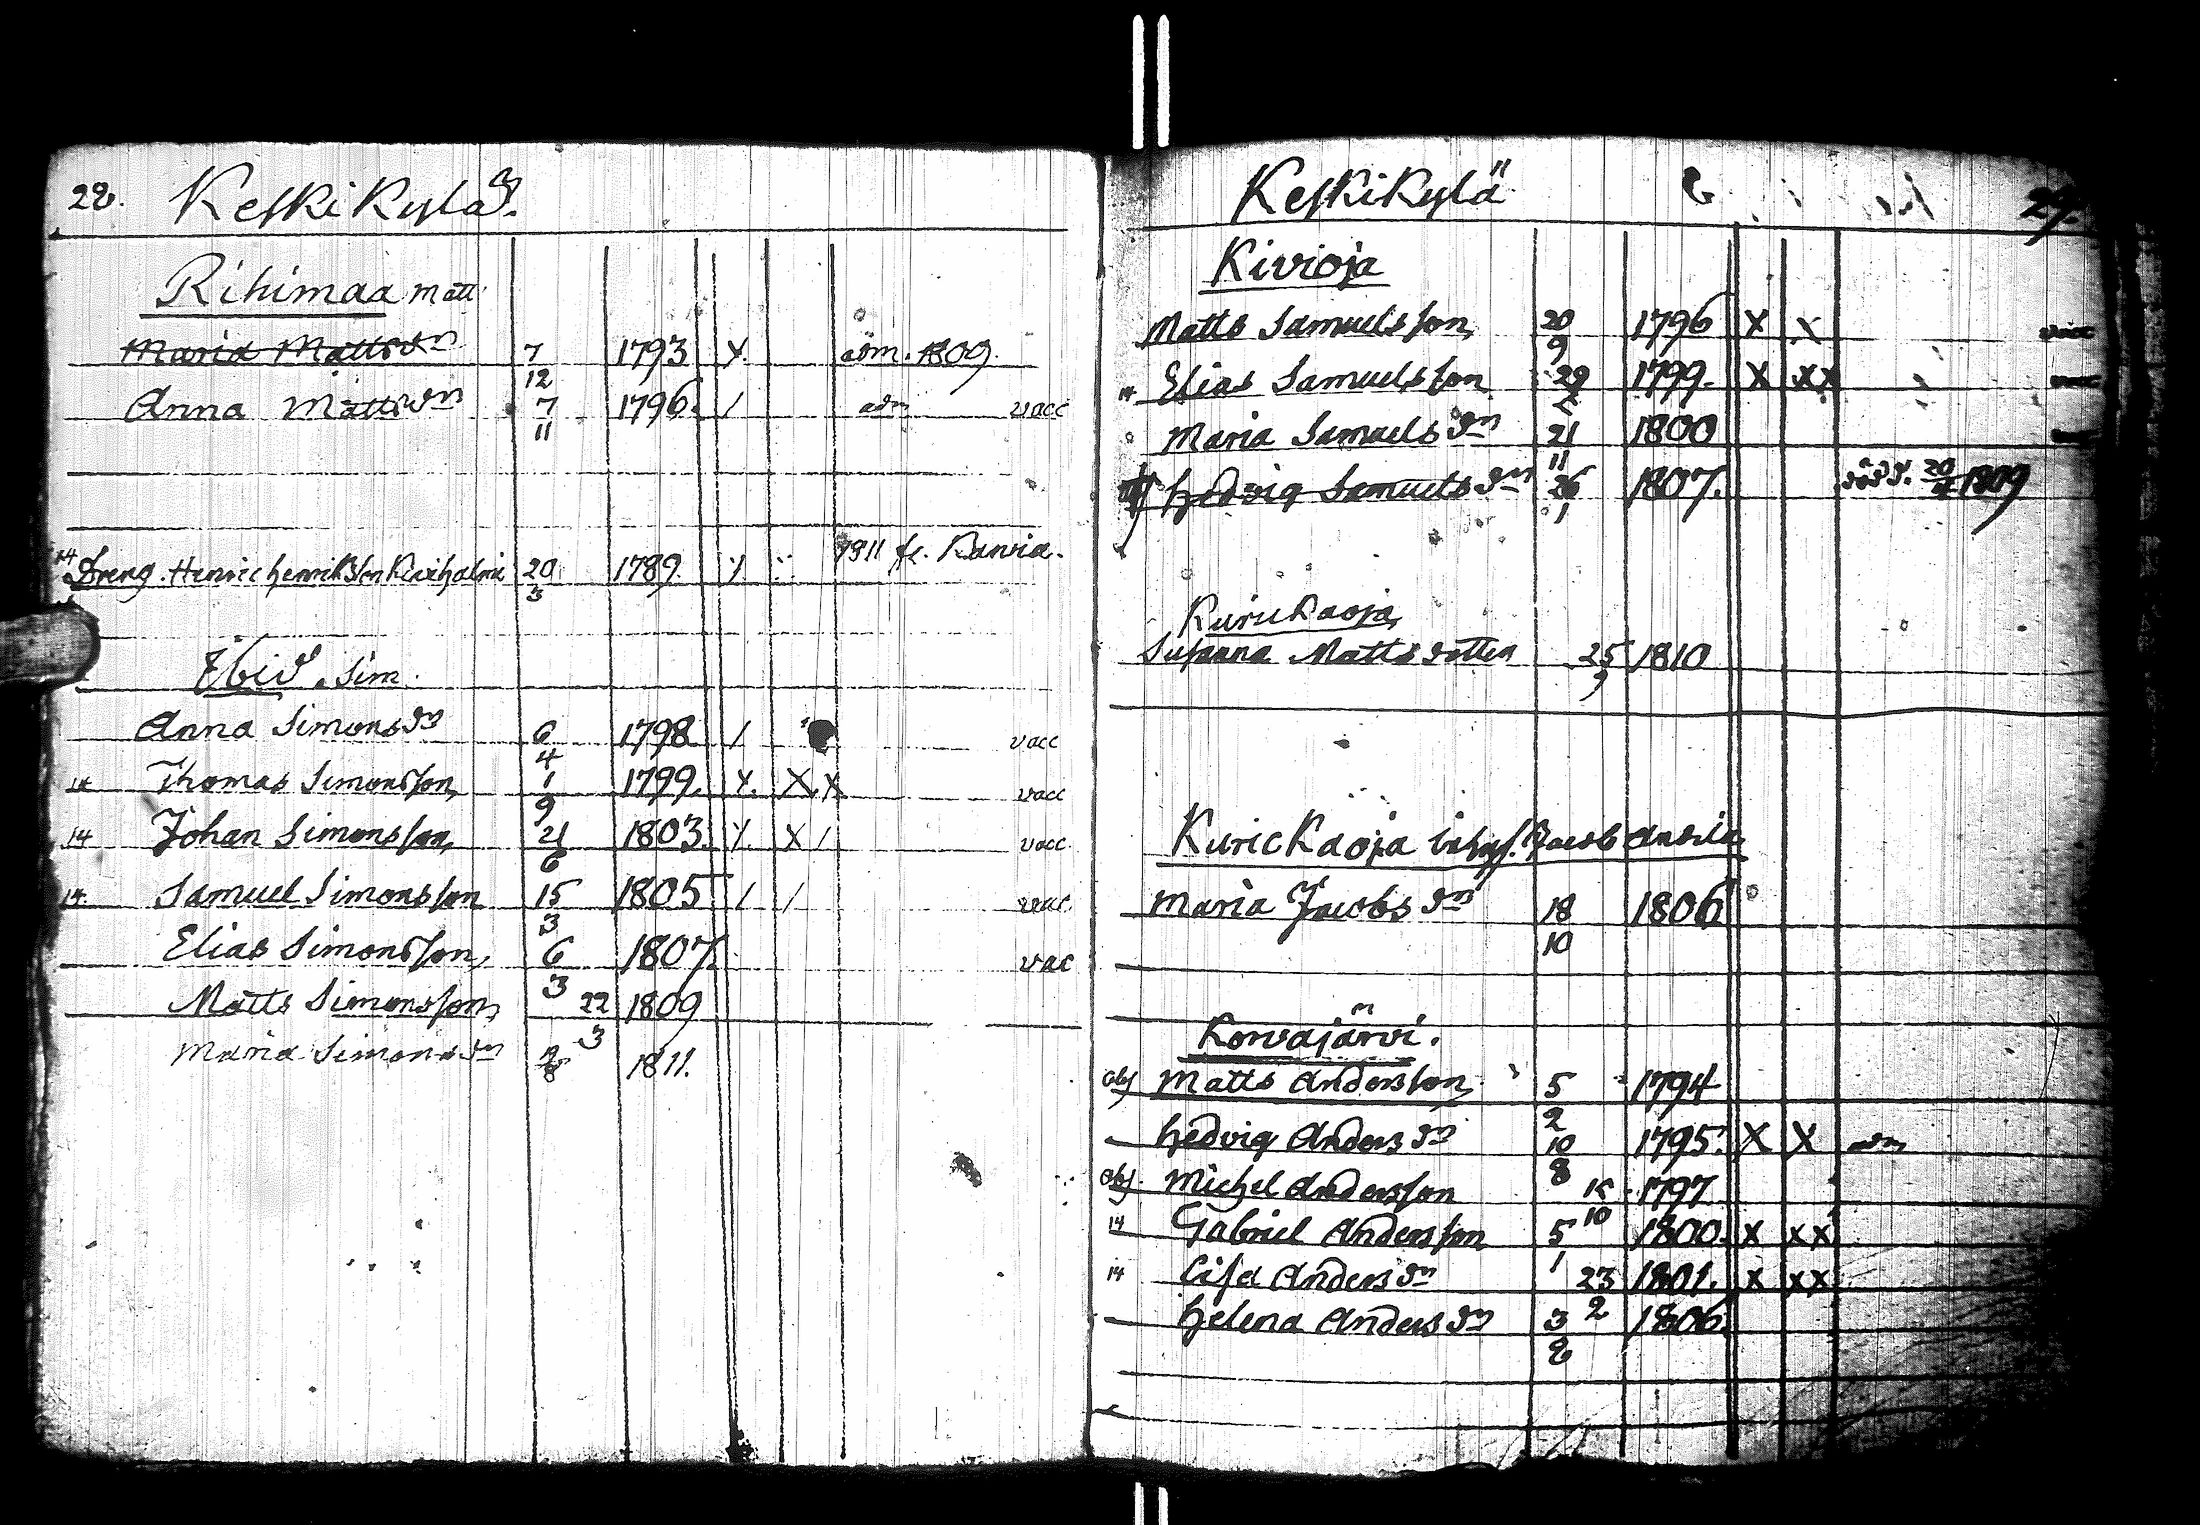 22. Keskikylä.
Rihimaa Matt
Maria Mattsdn 7/12 1793 x. adm. 1809.
Anna Mattsdn 7/11 1796. / adm vacc
14 Dreng. Henric Henriksson 20/3 1789. x 1811 fr.
Ibid. Sim.
Anna Simonsdn 6/4 1798 / vacc
14 Thomas Simonsson 1/9 1799. x. x x vacc
14 Johan Simonsson 21/6 1803. x. x / vacc
14. Samuel Simonsson 15/3 1805 / / vac
Elias Simonsson, 6/3 1807. vac
Matts Simonsson, 22/3 1809
Maria Simonsdn 1811.
Keskikylä 27.
Kivioja
Matts Samuelsson, 20/9 1796 x x vacc
14 Elias Samuelsson 29/2 1799. x xx vacc
Maria Samuelsdn 21/11 1800
Hedvig Samuelsdn 26/1 1807. död d. 1809
Kurickaoja
Susanna Mattsdotter 25/9 1810
Kurickaoja inhys. Jacob
Maria Jacobsdn 18/10 1806
Korvajärvi.
obs Matts Andersson, 5/2 1794
Hedvig Andersdn 10/8 1795. x x adm
obs. Michel Andersson 15/10 1797
14 Gabriel Andersson 5/1 1800. x xx
14 Lisa Andersdn 23/2 1801. x xx
Helena Andersdn 3/8 1806.